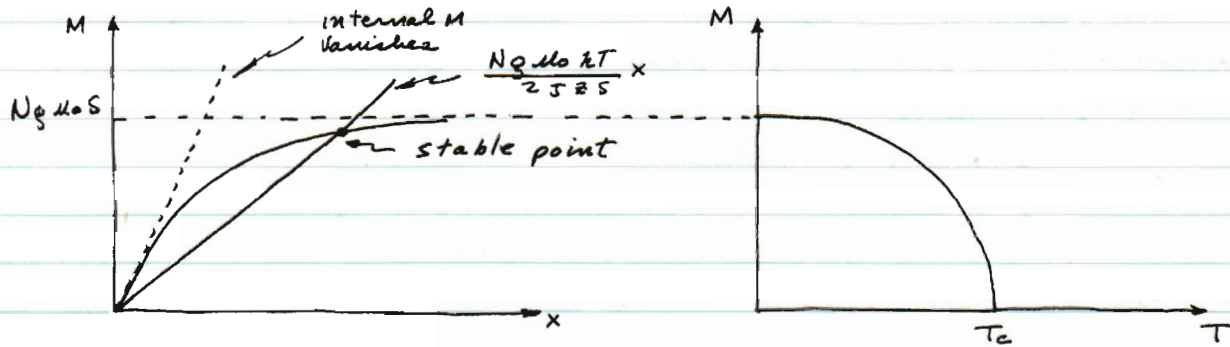 M
internal M
vanishes
Ngμ₀kT
2JzS
x
Ngμ₀S
stable point
x
M
Tc
T